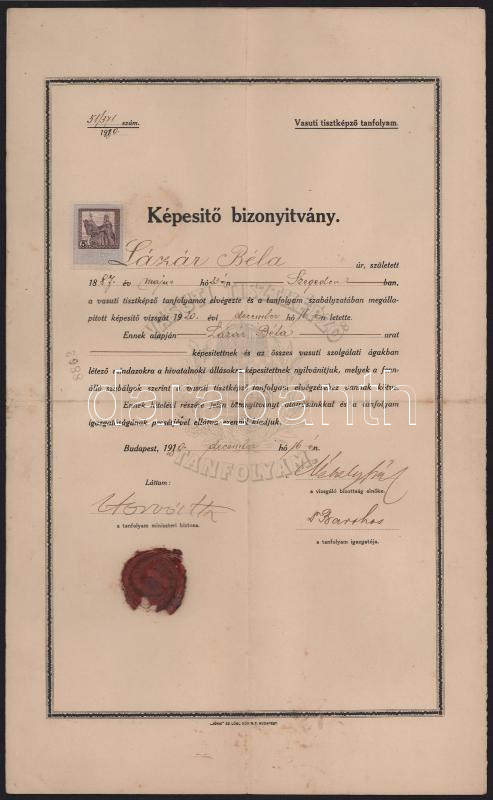 51/571 szám.
1920.
Vasuti tisztképző tanfolyam.
Képesitő bizonyitvány.
Lázár Béla úr, született
1887 év május hó én Szegeden ban,
a vasuti tisztképző tanfolyamot elvégezte és a tanfolyam szabályzatában megálla-
pitott képesitő vizsgát 1920. évi december hó 16 én letette.
Ennek alapján Lázár Béla urat
képesitettnek és az összes vasuti szolgálati ágakban
létező mindazokra a hivatalnoki állásokra képesitettnek nyilvánitjuk, melyek a fen-
álló szabályok szerint a vasuti tisztképző tanfolyam elvégzéséhez vannak kötve.
Ennek hiteléül részére jelen bizonyitványt aláirásunkkal és a tanfolyam
igazgatóságának pecsétjével ellátva ezennel kiadjuk.
Budapest, 1920. december hó 16 én.
8862
TANFOLYAM.
darabanth
Láttam:
Horváth
a tanfolyam miniszteri biztosa.
a vizsgáló bizottság elnöke.
Dr Barchos
a tanfolyam igazgatója.